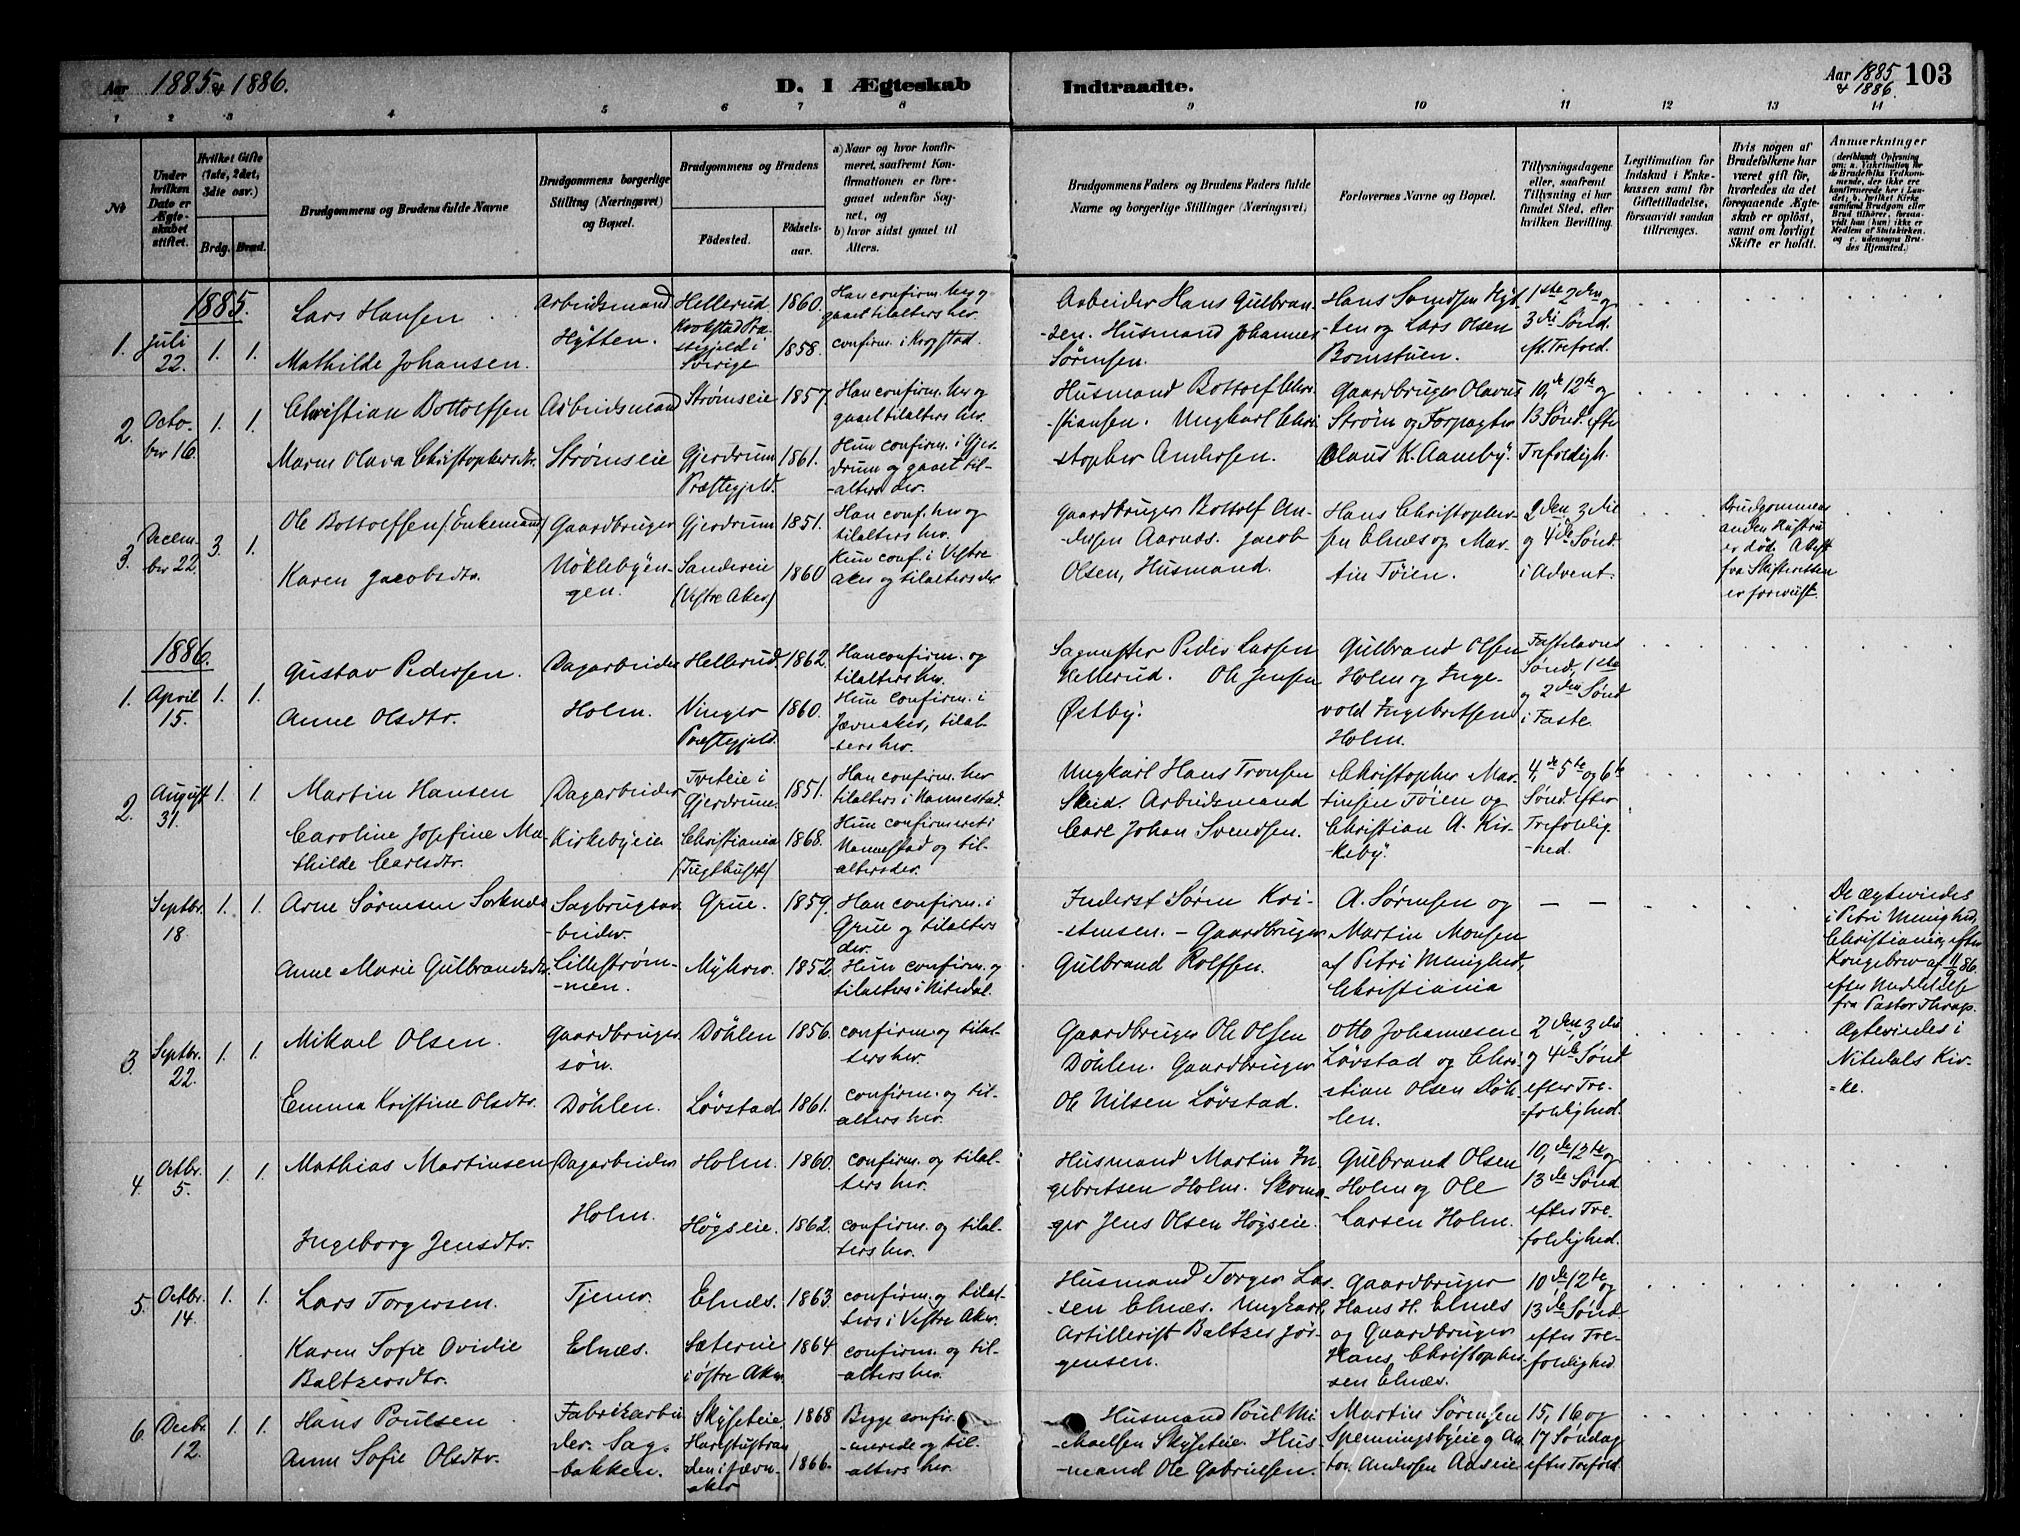 Aar 1885 & 1886.
D. 1 Ægteskab
Indtraadte.
Aar 1885 & 1886.
103
1 2 3 4 5 6 7 8 9 10 11 12 13 14
No
Under hvilken Dato er Ægteskabet stiftet.
Hvilket Gifte (1ste, 2det, 3die osv.)
Brdg. Brud.
Brudgommens og Brudens fulde Navne
Brudgommens borgerlige Stilling (Næringsvei) og Bopæl.
Brudgommens og Brudens
Födested.
Födselsaar.
a) Naar og hvor konfirmeret, saafremt Konfirmationen er foregaaet udenfor Sognet, og
b) hvor sidst gaaet til Alters.
Brudgommens Faders og Brudens Faders fulde Navne og borgerlige Stillinger (Næringsvei)
Forlovernes Navne og Bopæl.
Tillysningsdagene eller, saafremt Tillysning ei har fundet Sted, efter hvilken Bevilling.
Legitimation for Indskud i Enkekassen samt for Giftetilladelse, forsaavidt saadan tiltrænges.
Hvis nogen af Brudefolkene har været gift før, hvorledes da det foregaaende Ægteskab er oplöst, samt om lovligt Skifte er holdt.
Anmærkninger
1885.
1. Juli 22. 1. 1.
Lars Hansen
Mathilde Johansen.
Arbeidsmand
Hÿtten.
Hellerud
Krokstad Præstegjeld i Sverige
1860.
1858.
Han confirm. her og gaaet tilalters her.
confirm. i Krogstad.
Arbeider Hans Gulbran-
-sen. Husmand Johannes
Sörensen.
Hans Svendsen Hÿt-
-ten og Lars Olsen
Bomstuen.
1ste 2den og
3die Sönd.
eft. Trefold.
2. October 16. 1. 1.
Christian Bottolfsen
Maren Olava Christophersdtr.
Arbeidsmand
Strömseie
Strömseie
Gjerdrum
Præstegjeld.
1857
1861.
Han confirm. her og
gaaet tilalters her.
Hun confirm. i Gjer-
drum og gaaet til-
-alters her.
Husmand Bottolf Chri-
stiansen. Ungkarl Chri-
stopher Andersen.
Gaardbruger Olavus
Ström og Forpagter
Claus K. Aamby.
10de, 12te og
13 Sönd. efter
Trefoldigh.
3. December 22. 3. 1.
Ole Bottolfsen (Enkemand)
Karen Jacobsdtr.
Gaardbruger
Nöklebyen-
gen.
Gjerdrum
Sandereie
(Vestre Aker)
1851.
1860
Han conf. her og
tilalters her.
Hun conf. i Vestre
Aker og tilalters der
Gaardbruger Bottolf An-
dersen Aarnes. Jacob
Olsen, Husmand.
Hans Christopher-
sen Elnes og Mar-
tin Töien.
2den, 3die
og 4de Sönd.
i Advent.
Brudgommens
anden Hustru
er död. Attest
fra Skifteretten
er forevist.
1886.
1. April 15. 1. 1.
Gustav Pedersen.
Anne Olsdtr.
Dagarbeider
Holm.
Hellerud.
Vinger
Præstegjeld.
1862.
1860.
Han confirm. og
tilalters her.
Hun confirm. i
Jævnaker, tilal-
-ters her.
Sagmester Peder Larsen
Hellerud. Ole Jensen
Østby.
Gulbrand Olsen
Holm og Inge-
vold Ingebretsen
Holm.
Fastelavns
Sönd, 1ste
og 2den Sönd
i Faste.
2. August 31. 1. 1.
Martin Hansen
Caroline Josefine Ma-
thilde Carlsdtr.
Dagarbeider
Kirkebyeie
Tveteie i
Gjerdrum.
Christiania
(Tugthuset)
1851.
1868.
Han confirm. her
tilalters i Nannestad.
Hun confirmeret i
Nannestad og til-
altersder.
Ungkarl Hans Tronsen
Skeid. Arbeidsmand
Carl Johan Svendsen.
Christopher Mar-
tinsen Töien og
Christian A. Kir-
-keby.
4de, 5te og 6te
Sönd. efter
Trefoldig-
-hed.
Septbr. 18. 1. 1.
Arne Sörensen Sorknes
Anne Marie Gulbrandsdtr.
Sagbrugsar-
-beider.
Lilleström-
-men.
Grue.
Mÿhrer.
1859.
1852.
Han confirm. i
Grue og tilalters
der.
Hun confirm. og
tilalters i Nitedal.
Inderst Sören Kri-
-stensen. - Gaardbruger
Gulbrand Rolfsen.
A. Sörensen og
Martin Monsen
af Petri Menighed,
Christiania
— —
De ægteviedes
i Petri Menighed,
Christiania, efter
Kongebrev af 11/9 86.
efter Meddelelse
fra Pastor Thrap.
3. Septbr. 22. 1. 1.
Mikael Olsen.
Emma Kristine Olsdtr.
Gaardbruger
sön.
Döhlen.
Döhlen
Lövstad.
1856.
1861.
confirm. og tilal-
ters her.
confirm. og til-
alters her.
Gaardbruger Ole Olsen
Döhlen. Gaardbruger
Ole Nilsen Lövstad.
Otto Johannesen
Lövstad og Chri-
stian Olsen Döh-
-len.
2den, 3die
og 4de Sönd
efter Tre-
-foldighed.
Ægteviedes i
Nitedals Kir-
-ke.
4. Octbr. 5. 1. 1.
Mathias Martinsen
Ingeborg Jensdtr.
Dagarbeider
Holm.
Holm.
Högseie.
1860.
1862.
confirm. og tilal-
ters her.
confirm. og tilal-
ters her.
Husmand Martin In-
gebretsen Holm. Skoma-
ger Jens Olsen Högseie.
Gulbrand Olsen
Holm og Ole
Larsen Holm.
10de, 12te og
13de Sönd
efter Tre-
foldighed.
5. Octbr. 14. 1. 1.
Lars Torgersen.
Karen Sofie Ovidie
Baltzersdtr.
Tjener
Elnæs.
Elnæs.
Sætereie
i Østre Aker.
1863.
1864.
confirm. og tilal-
ters i Vestre Aker.
confirm. og til-
alters her.
Husmand Torger Lar-
-sen Elnæs. Ungkarl,
Artillerist Baltzer Jör-
gensen.
Gaardbruger
Hans H. Elnæs
og Gaardbruger
Hans Christopher-
sen Elnæs.
10de, 12te og
13de Sönd
efter Tre-
foldighed.
6. Decbr. 12. 1. 1.
Hans Poulsen
Anne Sofie Olsdtr.
Fabrikarbei-
der. Sag-
bakken.
Skÿseteie
1868
1866.
Begge confir-
-merede og til-
alters her.
Husmand Poul Mi-
-kaelsen Skÿseteie. Hus-
-mand Ole Gabrielsen.
Martin Sörensen
Spenningsbyeie og An-
ton Andersen Aaseie
15, 16 og
17 Söndag
efter Trefold.